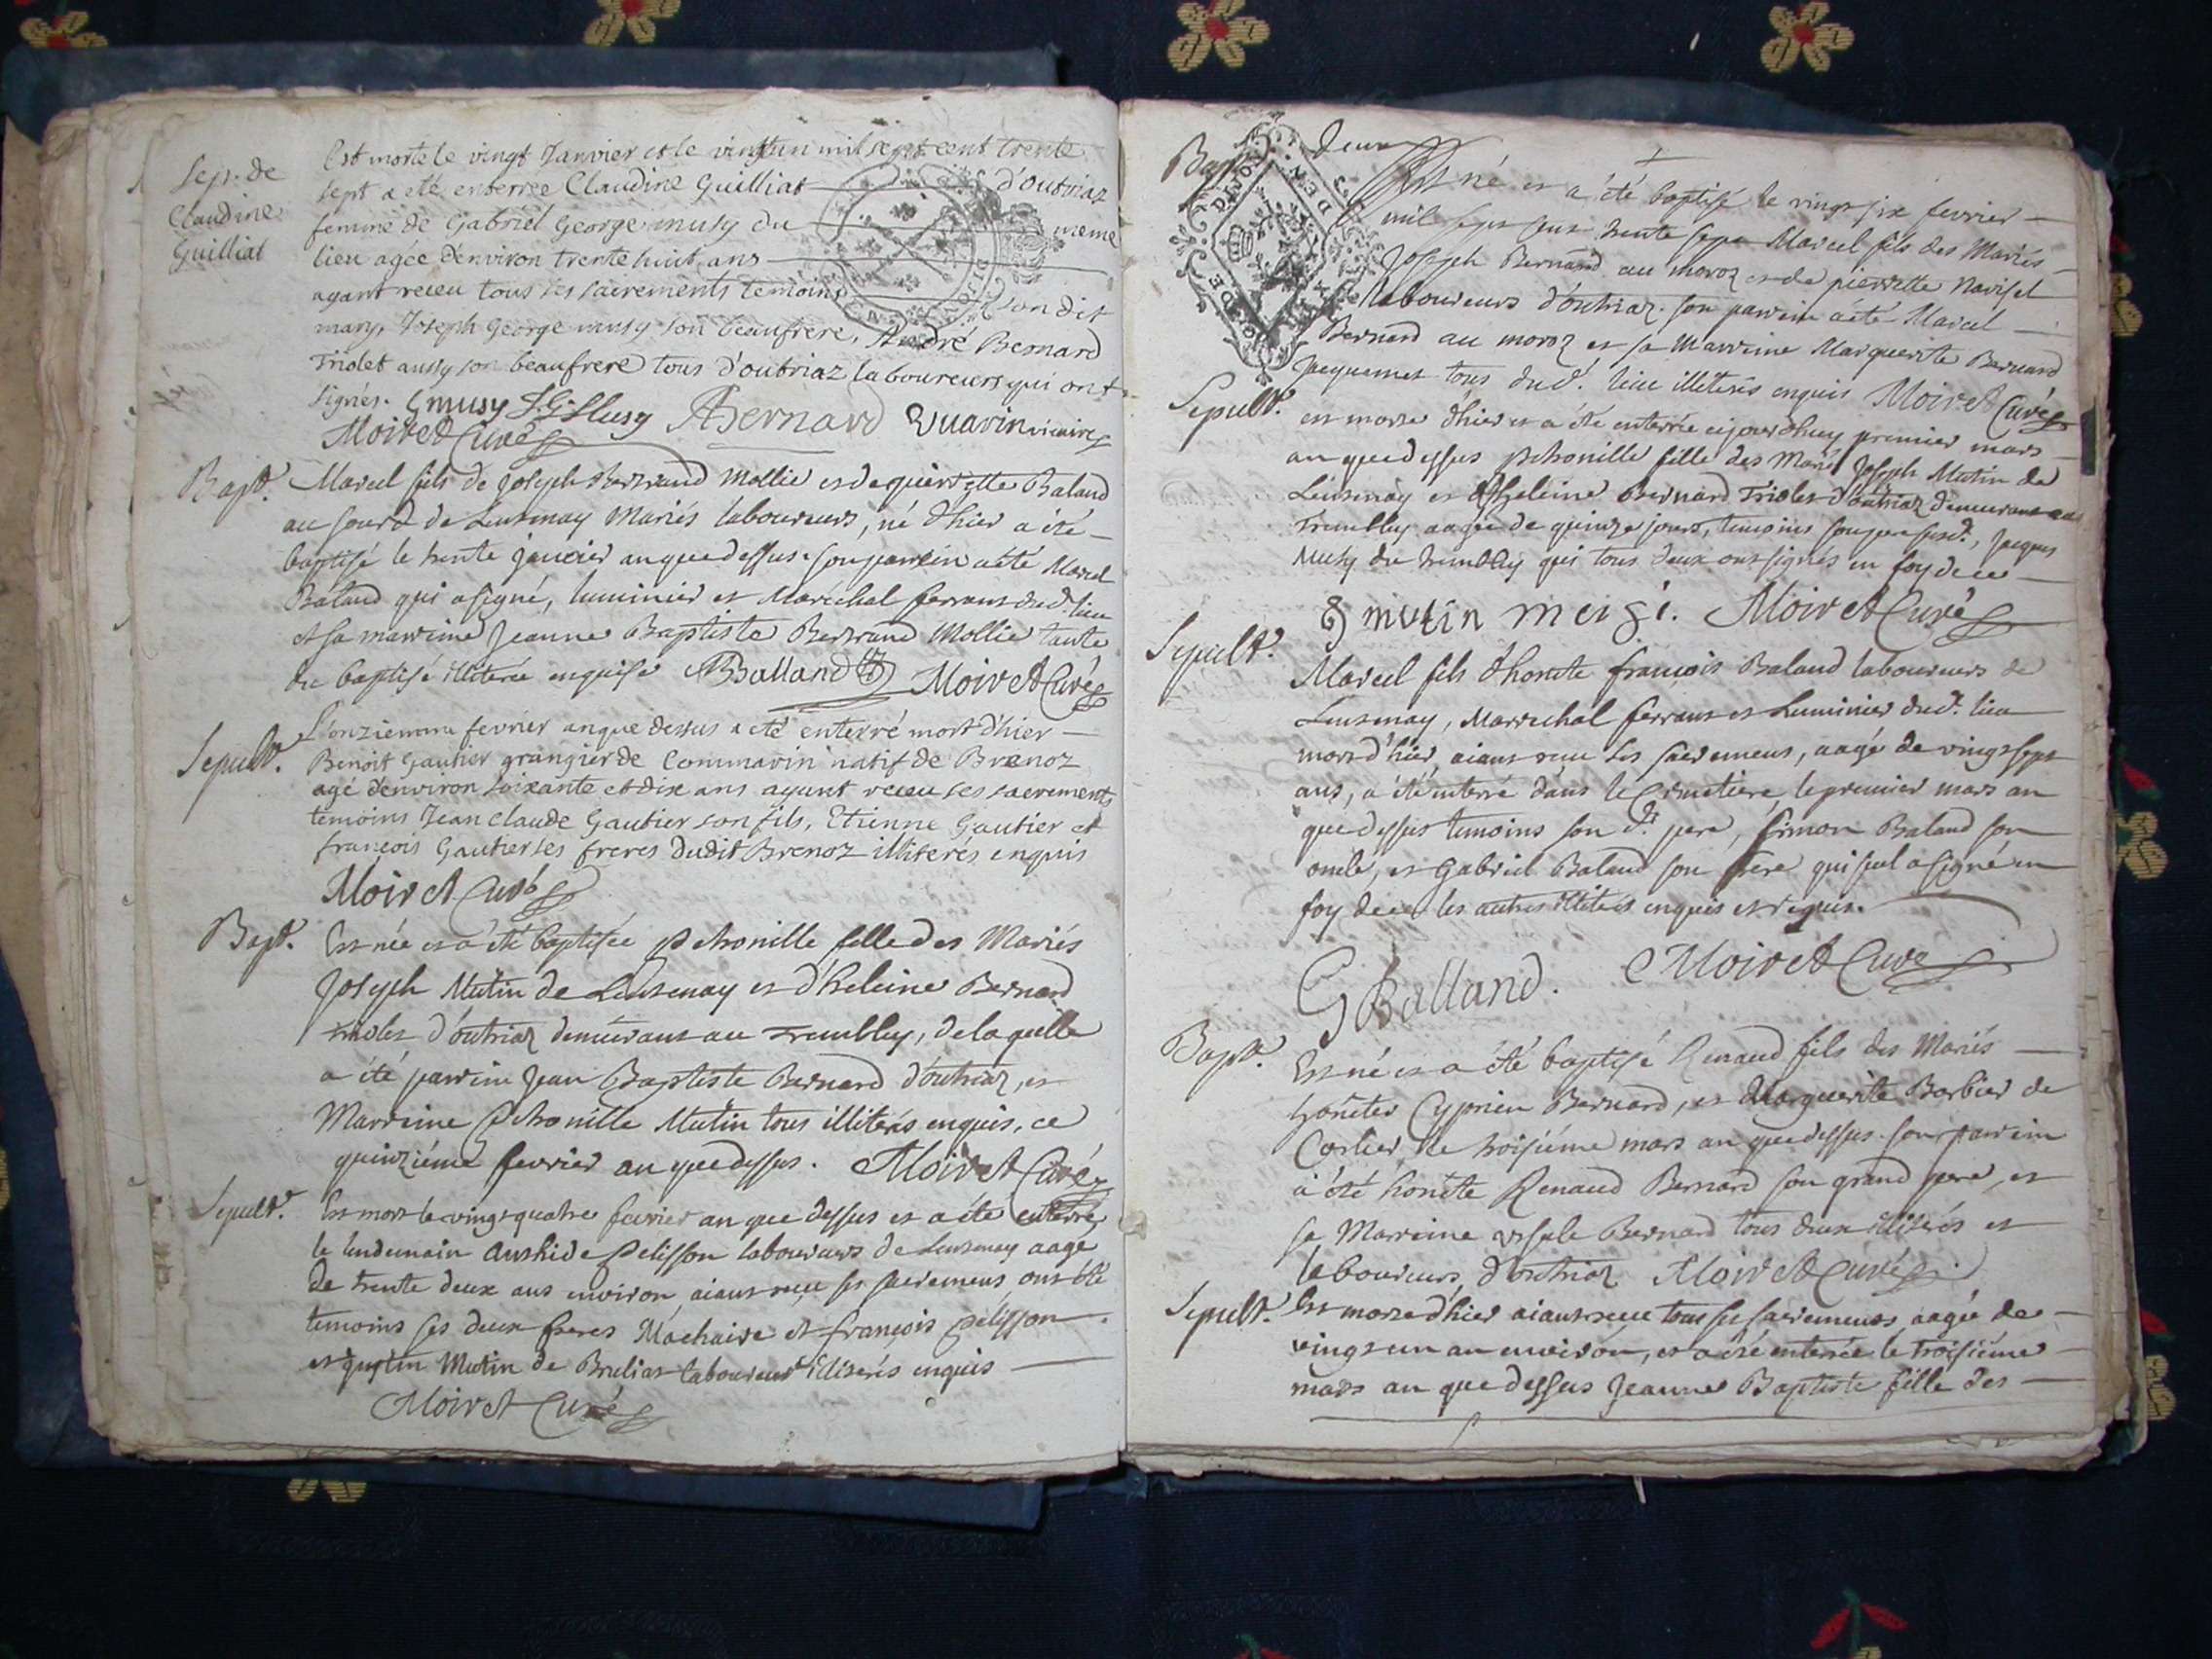 Sep. de
Claudine
Guilliat
Est morte le vingt Janvier et le vingtun mil sept cent trente
sept a eté enterrée Claudine Guilliat d'outriaz
femme de Gabriel George musy du meme
lieu agée d'environ trente huit ans
ayant receu tous ses sacrements temoins son dit
mary, Joseph George musy son beaufrere, André Bernard
Triolet aussy son beaufrere tous d'outriaz laboureurs qui ont
signés. Gmusy J.G. Musy ABernard Vuarin vicaire
Moiret Curé
Bapt. Marcel fils de Joseph Bertrand Mollie et de pierrette Baland
au sourd de Lentenay Mariés laboureurs, né d'hier a été
baptisé le trente janvier an que dessus. son parrein a été Marcel
Baland qui a signé, luminier et Marechal ferrant dud. lieu
et sa marreine Jeanne Baptiste Bertrand Mollie tante
du baptisé illiterée enquise Balland Moiret Curé
Sepult. L'onzieme fevrier an que dessus a eté enterré mort d'hier
Benoit Gautier grangier de Commarin natif de Brenoz
agé d'environ soixante et dix ans ayant receu ses sacrements
temoins Jean Claude Gautier son fils, Etienne Gautier et
françois Gautier ses freres dudit Brenoz illiterés enquis
Moiret Curé
Bapt. Est née et a été baptisée petronille fille des Mariés
Joseph Mutin de Lentenay et d'heleine Bernard
triolet d'outriaz demeurant au tremblay, de laquelle
a été parrein Jean Baptiste Bernard d'outriaz, et
Marreine petronille Mutin tous illiterés enquis, ce
quinziéme fevrier an que dessus. Moiret Curé
Sepult. Est mort le vingt quatre fevrier an que dessus et a été enterré
le lendemain Anthide Pelisson laboureur de Lentenay aagé
de trente deux ans environ aiant reçu ses sacremens, ont été
temoins ses deux freres Machaire et françois pelisson
et Mutin de laboureur illiterés enquis
Moiret Curé
Bapt. deux
Est né et a été baptisé le vingt six fevrier
mil sept cent trente sept Marcel fils des Mariés
Joseph Bernard au moroz et de pierrette Navisel
laboureurs d'outriaz. son parrein a été Marcel
Bernard au moroz et sa Marreine Marguerite Bernard
Jacquemet tous dud. lieu illiterés enquis Moiret Curé
Sepult. est morte d'hier et a été enterrée ejourdhuy premier mars
an que dessus petronille fille des Mariés Joseph Mutin de
Lentenay et d'heleine Bernard Triolet d'outriaz demeurant au
Tremblay aagée de quinze jours, temoins son pere susd., Jacques
Musy du tremblay qui tous deux ont signés en foy de ce
mutin meizi. Moiret Curé
Sepult. Marcel fils d'honete françois Baland laboureurs de
Lentenay, Marrechal ferrant et Luminier dud. lieu
mort d'hier, aiant reçu ses sacremens, aagé de vingt sept
ans, a été enterré dans le Cimetiere, le premier mars an
que dessus temoins son d.t pere, Simon Baland son
oncle, et Gabriel Baland son frere qui seul a signé en
foy de ce les autres illiterés enquis et requis.
GBalland. Moiret Curé
Bapt. Est né et a été baptisé Renaud fils des Mariés
honetes Cyprien Bernard, et Marguerite Barbier de
Corlier, le troisiéme mars an que dessus. son parrein
a été honete Renaud Bernard son grand pere, et
sa Marreine ursule Bernard tous deux illiterés et
laboureurs d'outriaz Moiret Curé
Sepult. Est morte d'hier aiant receu tous ses sacremens aagée de
vingt un an environ, et a été enterrée le troisiéme
mars an que dessus Jeanne Baptiste fille des